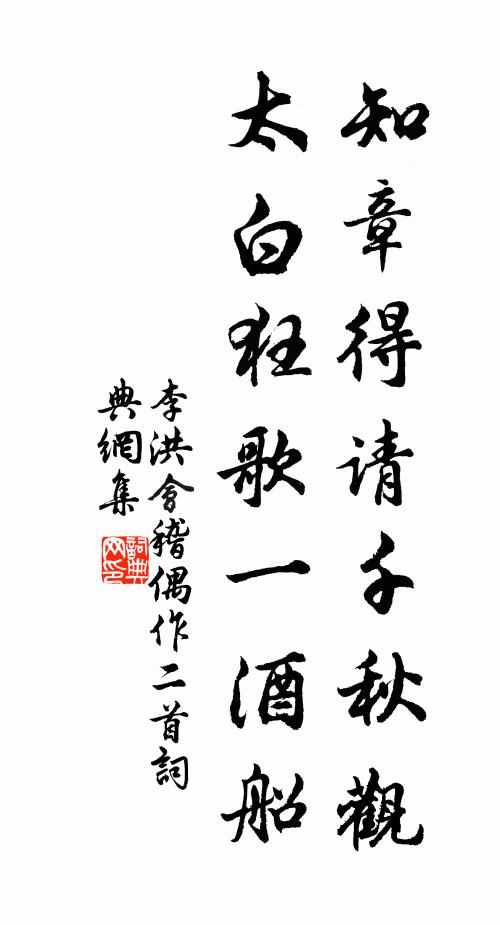 知章得请千秋觀
太白狂歌一酒船
李洪會稽偶作二首詞
典網集
詞典
网印